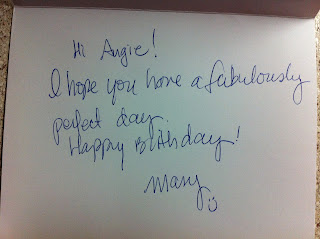 Hi Angie!
I hope you have a fabulously
perfect day.
Happy Birthday!
Mary